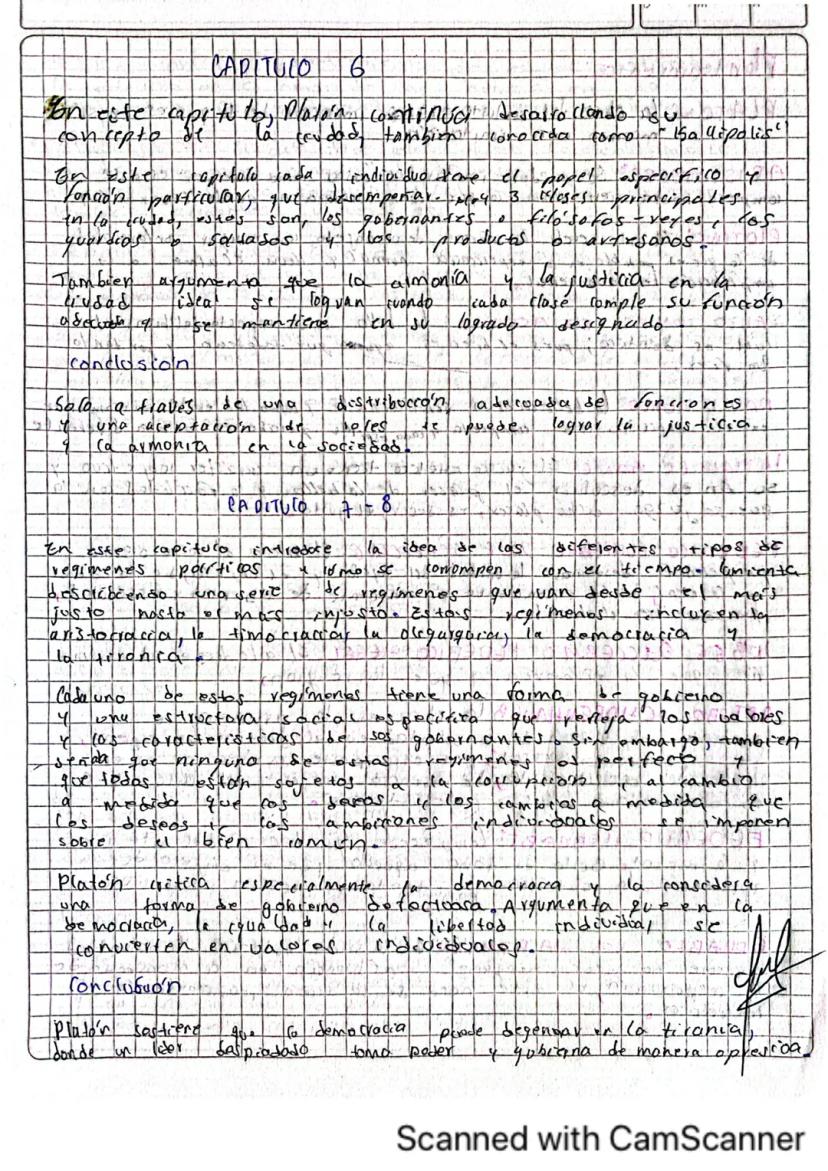 CAPITULO 6
En este capitulo, Platón continua desarrollando su
concepto de la ciudad, tambien conocida como "Kallipolis"
En este capitulo cada individuo tiene el papel especifico y
función particular, que desempeñar. Hay 3 clases principales
en la ciudad, estos son, los gobernantes o filósofos-reyes, los
guardias o soldados y los productos o artesanos.
Tambien argumenta que la almonía y la justicia en la
ciudad ideal se logran cuando cada clase comple su función
adecuada y se mantiene en su logrado designado
conclusión
Solo a traves de una distribucción adecuada de funciones
y una aceptación de roles se puede lograr la justicia
y la armonia en la sociedad.
CAPITULO 7-8
En este capitulo introduce la idea de los diferentes tipos de
regimenes políticos y como se corrompen con el tiempo. Comienta
describiendo una serie de regimenes que van desde el mas
justo hasta el mas injusto. Estos regimenes incluyen la
aristocracia, la timocracia, la oligarquia, la democracia y
la tirania.
Cada uno de estos regimenes tiene una forma de gobierno
y una estructura social especifica que refleja los valores
y las caracteristicas de sos gobernantes. Sin embargo, tambien
señala que ninguno de estos regimenes es perfecto y
que todos están sujetos a la corrupción y al cambio
a medida que los deseos y los cambios a medida que
los deseos y las ambiciones individuales se imponen
sobre el bien común.
Platón critica especialmente la democracia y la considera
una forma de gobierno defectuosa. Argumenta que en la
democracia, la igualdad y la libertad individual se
convierten en valores individuales.
Conclusión
Platón sostiene que la democracia puede degenerar en la tirania,
donde un lider despiadado toma poder y gobierna de manera opresiva.
Scanned with CamScanner